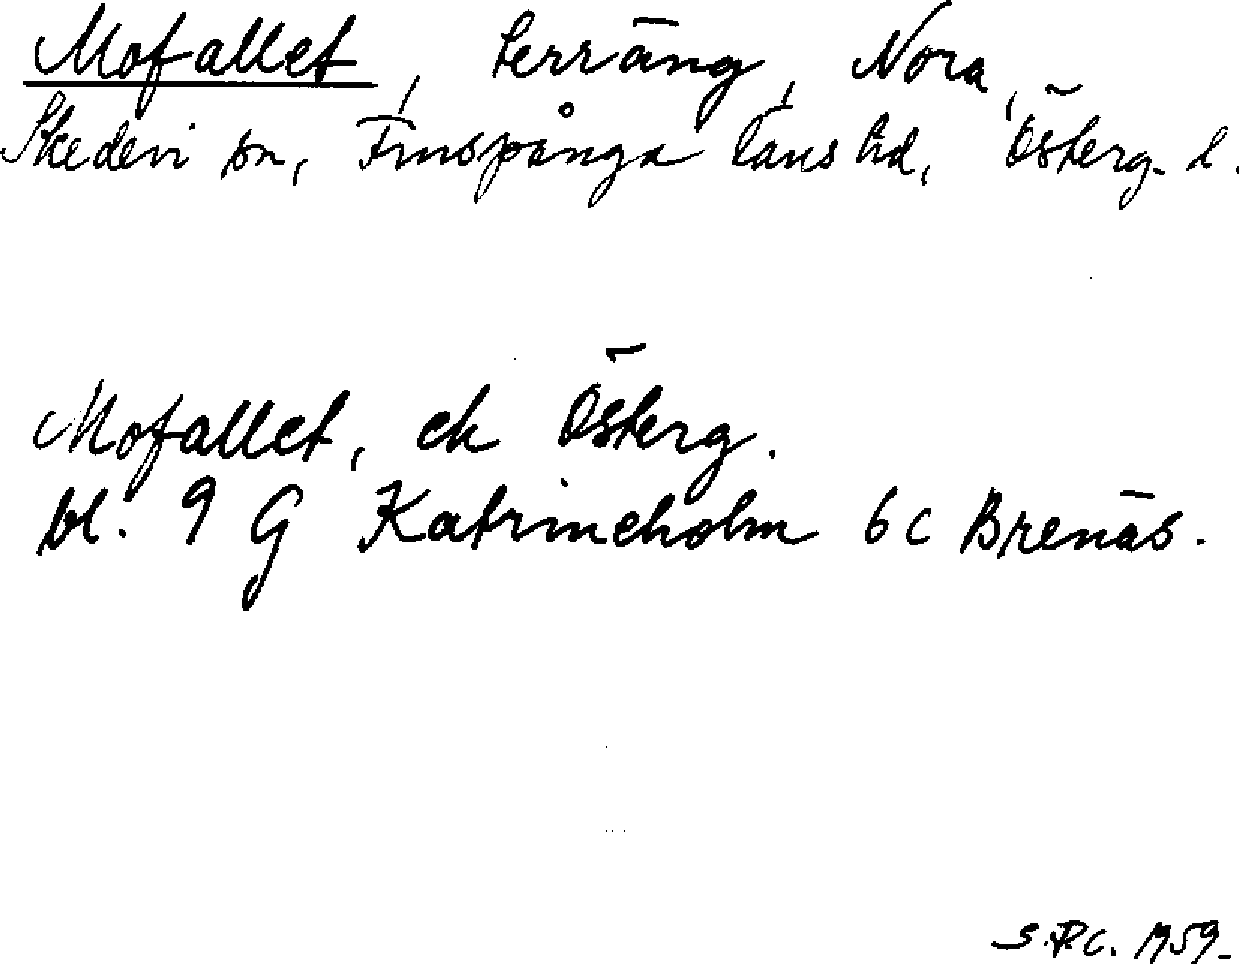 Mofallet, terräng, Nora,
Skedevi sn, Finspånga läns hd, Österg. l.
Mofallet, ek Österg.
bl. 9 G Katrineholm 6 c Brenäs.
S.P.C. 1959.